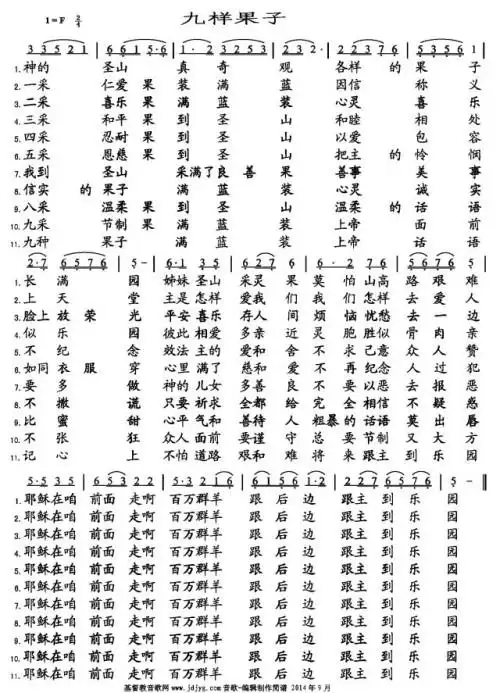 九样果子
1=F 2/4
3 3 5 2 1 6 6 1 5·6 1· 2 3 2 5 2 3· 2 2 3 7 6 5 6 5 1
1.神的 圣山 真奇观 各样的果子
2.一采 仁爱果 装满蓝 因信称义
3.二采 喜乐果 满蓝装 心灵喜乐
4.三采 和平果 到圣山 和睦相处
5.四采 忍耐果 到圣山 以爱包容
6.五采 恩慈果 到圣山 把主的怜悯
7.我到 圣山 采满了良善果 善事美事
8.信实的果子 满蓝装 心灵诚实
9.八采 温柔果 到圣山 温柔的话语
10.九采 节制果 到圣山 上帝面前
11.九种 果子 满蓝装 上帝话语
2·7 6 5 7 6 5 - 6·1 3 5 6 5 6 7 6 7 6 5 3 5 2 3 2 7 6 5
1.长满园 姊妹圣山 采灵果莫怕山高路艰难
2.上天堂 主是怎样 爱我们我们怎样去爱人
3.脸上放荣光 平安喜乐 存人间烦恼忧愁去一边
4.似乐园 彼此相爱 多亲近灵胞胜似骨肉亲
5.不纪念 效法主的 爱和舍不求己意众人赞
6.如同衣服穿 心里满了 慈和爱不再纪念人过犯
7.要多做 神的儿女 多善良不要以恶去报恶
8.不撒谎 只要祈求 全都给完全相信不疑惑
9.比蜜甜 心平气和 善待人粗暴的话语莫出唇
10.不张狂 众人面前 要谨守总要节制又大方
11.记心上 不怕道路 艰和难将来跟主到乐园
5·5 3 5 6 5 3 2· 3 2·2 1 2 6 1 6 5 3 2 2 3 7 6 5 6 1 5 -
1.耶稣在咱 前面 走啊 百万群羊 跟后边 跟主到乐园
2.耶稣在咱 前面 走啊 百万群羊 跟后边 跟主到乐园
3.耶稣在咱 前面 走啊 百万群羊 跟后边 跟主到乐园
4.耶稣在咱 前面 走啊 百万群羊 跟后边 跟主到乐园
5.耶稣在咱 前面 走啊 百万群羊 跟后边 跟主到乐园
6.耶稣在咱 前面 走啊 百万群羊 跟后边 跟主到乐园
7.耶稣在咱 前面 走啊 百万群羊 跟后边 跟主到乐园
8.耶稣在咱 前面 走啊 百万群羊 跟后边 跟主到乐园
9.耶稣在咱 前面 走啊 百万群羊 跟后边 跟主到乐园
10.耶稣在咱 前面 走啊 百万群羊 跟后边 跟主到乐园
11.耶稣在咱 前面 走啊 百万群羊 跟后边 跟主到乐园
基督教音歌网www.jdjyg.com音歌-编辑制作简谱 2014年9月